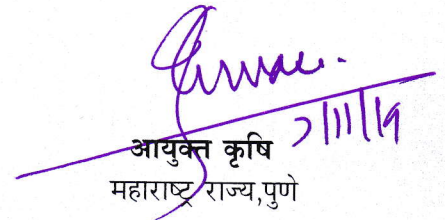 7/11/19
आयुक्त कृषि
महाराष्ट्र राज्य,पुणे